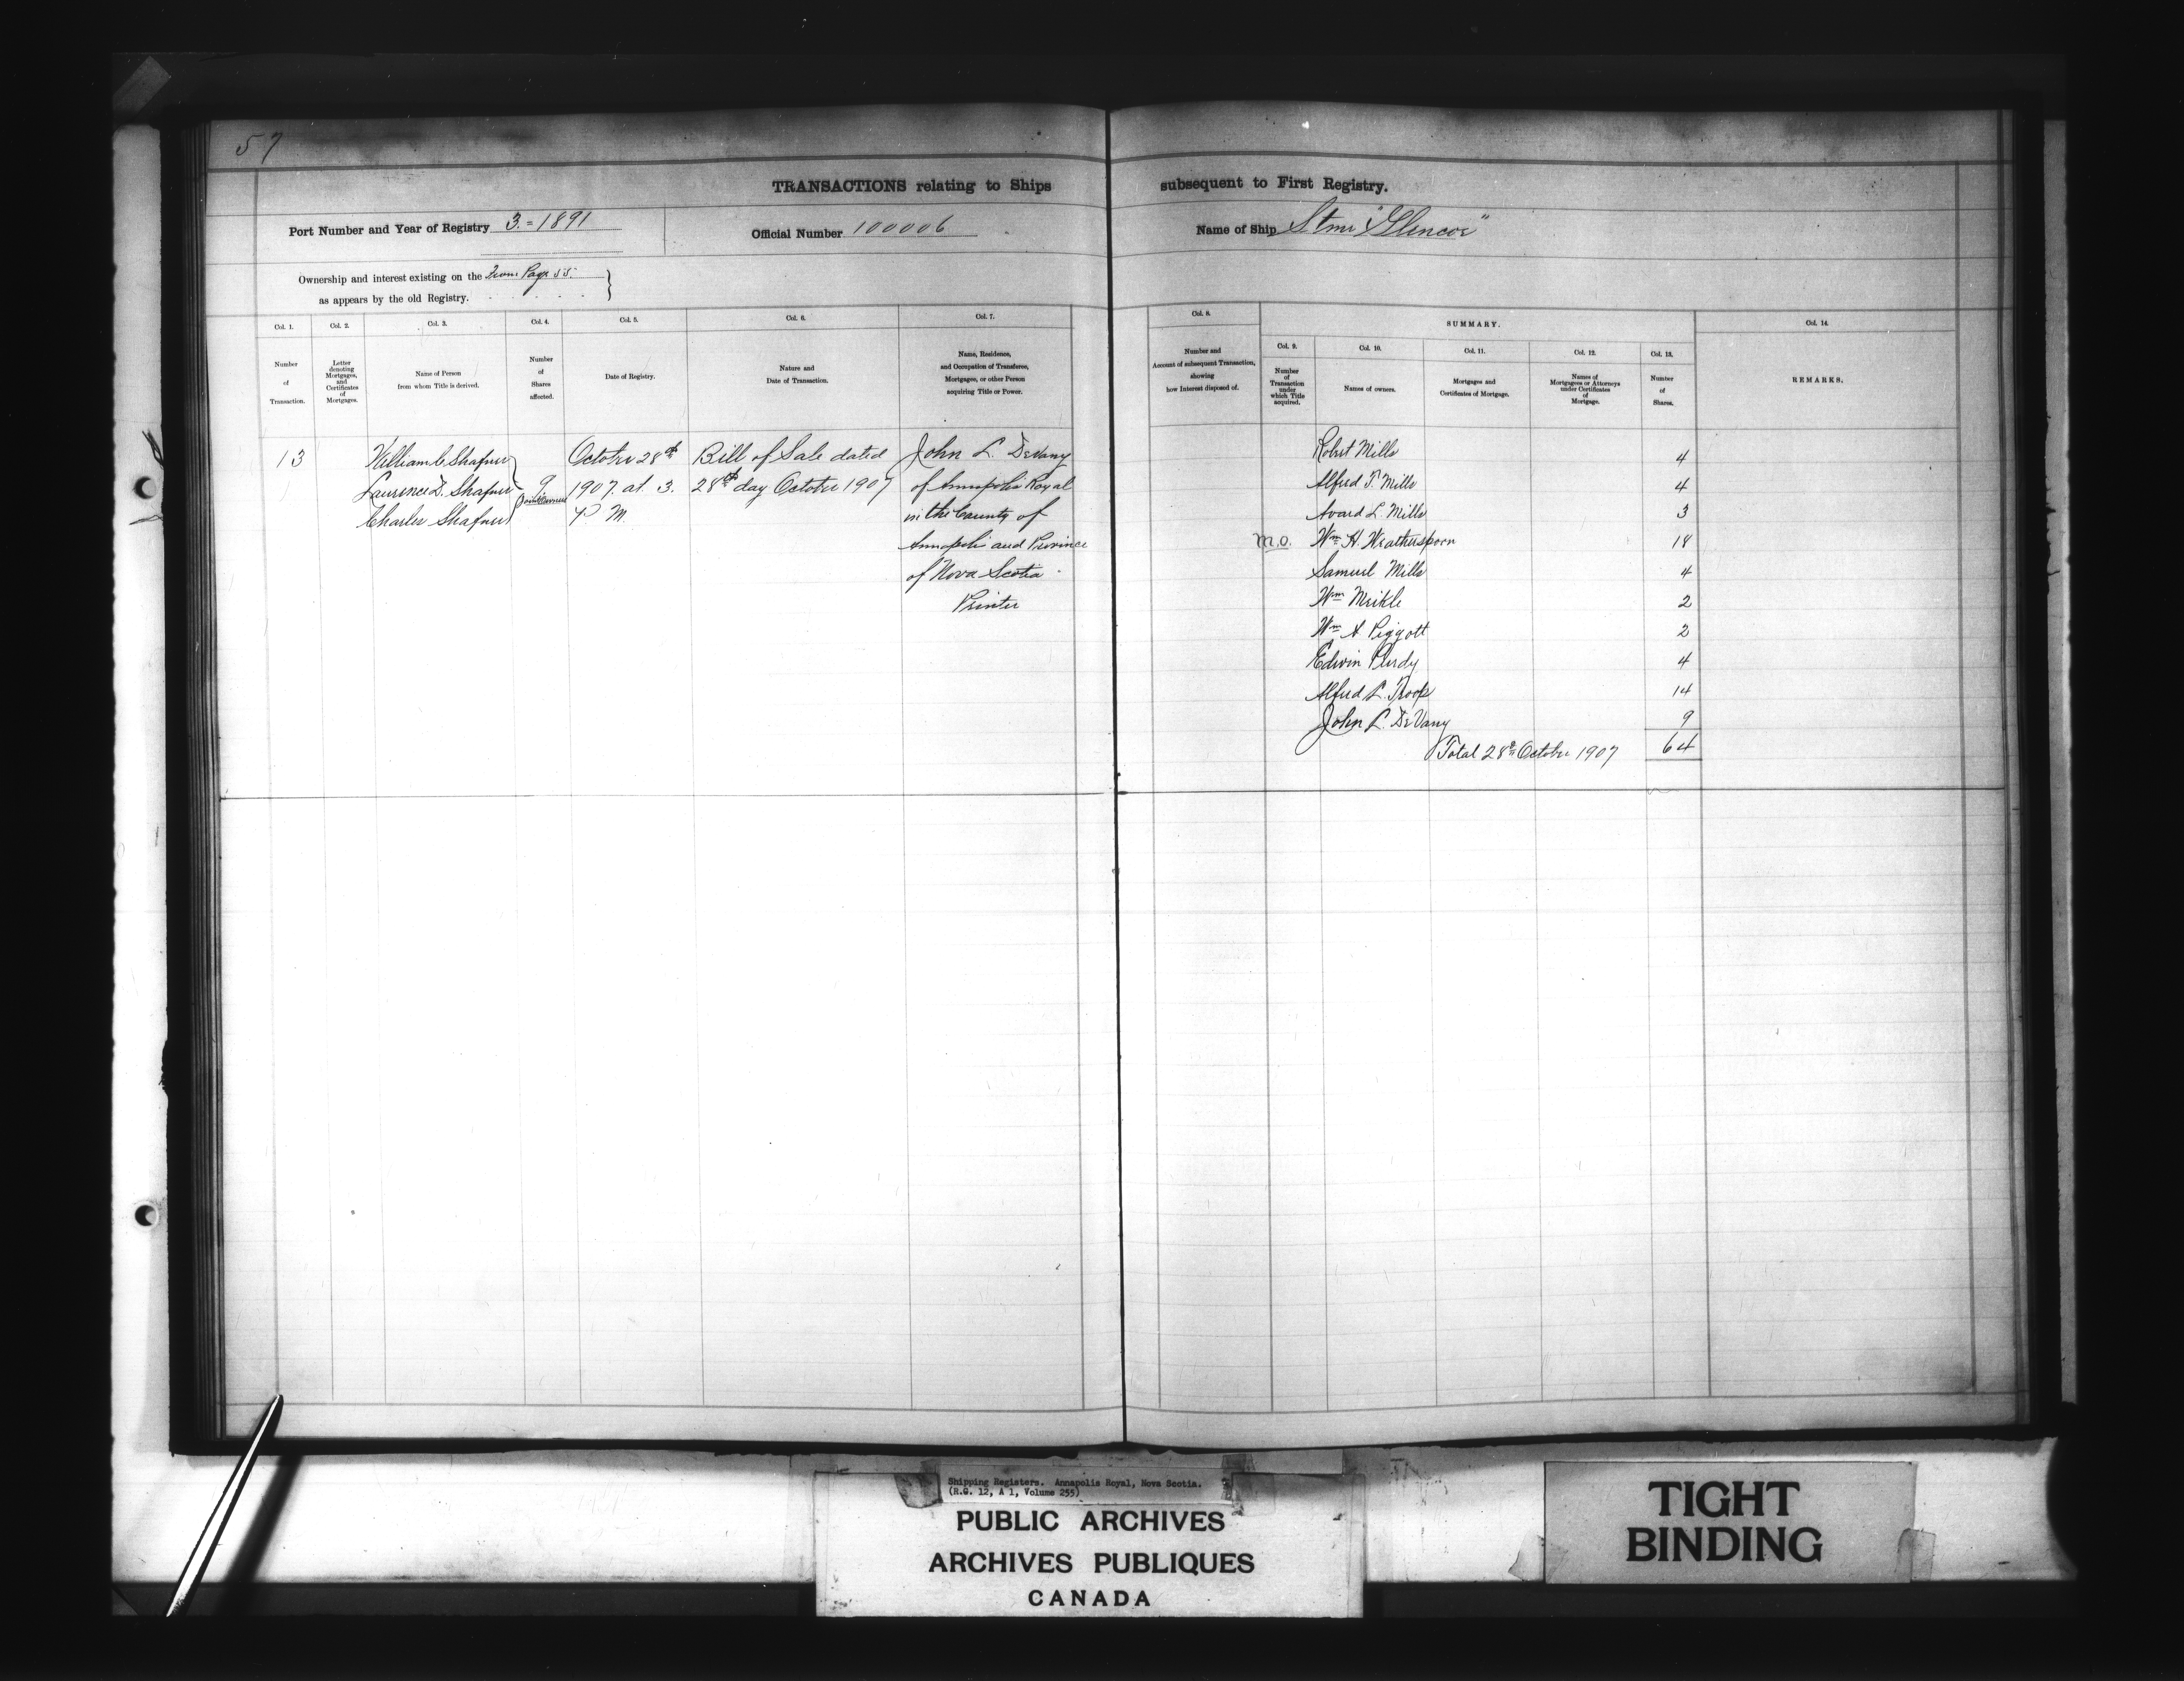 57
TRANSACTIONS relating to Ships subsequent to First Registry.
Port Number and Year of Registry 3.=1891
Official Number 100006
Name of Ship Stmr "Glencoe"
Ownership and interest existing on the From Page 55.
as appears by the old Registry.
Col. 1.
Number
of
Transaction.
Col. 2.
Letter
denoting
Mortgages,
and
Certificates
of
Mortgages.
Col. 3.
Name of Person
from whom Title is derived.
Col. 4.
Number
of
Shares
affected.
Col. 5.
Date of Registry.
Col. 6.
Nature and
Date of Transaction.
Col. 7.
Name, Residence,
and Occupation of Transferee,
Mortgagee, or other Person
acquiring Title or Power.
Col. 8.
Number and
Account of subsequent Transaction,
showing
how Interest disposed of.
SUMMARY.
Col. 9.
Number
of
Transaction
under
which Title
acquired.
Col. 10.
Names of owners.
Col. 11.
Mortgages and
Certificates of Mortgage.
Col. 12.
Names of
Mortgagees or Attorneys
under Certificates
of
Mortgage.
Col. 13.
Number
of
Shares.
Col. 14.
REMARKS.
13
William C Shafner
Laurence D. Shafner
Charles Shafner
9
Joint Owners
October 28th
1907. at 3.
P M.
Bill of Sale dated
28th day October 1907
John L. DeVany
of Annapolis Royal
in the County of
Annapolis and Province
of Nova Scotia
Printer
Robert Mills 4
Alfred T. Mills 4
Avard L. Mills 3
M.O. Wm H. Weatherspoon 18
Samuel Mills 4
Wm Meikle 2
Wm A Piggott 2
Edwin Purdy 4
Alfred L. Troop 14
John L. DeVany 9
Total 28th October 1907 64
Shipping Registers. Annapolis Royal, Nova Scotia.
(R.G. 12, A 1, Volume 255)
PUBLIC ARCHIVES
ARCHIVES PUBLIQUES
CANADA
TIGHT
BINDING